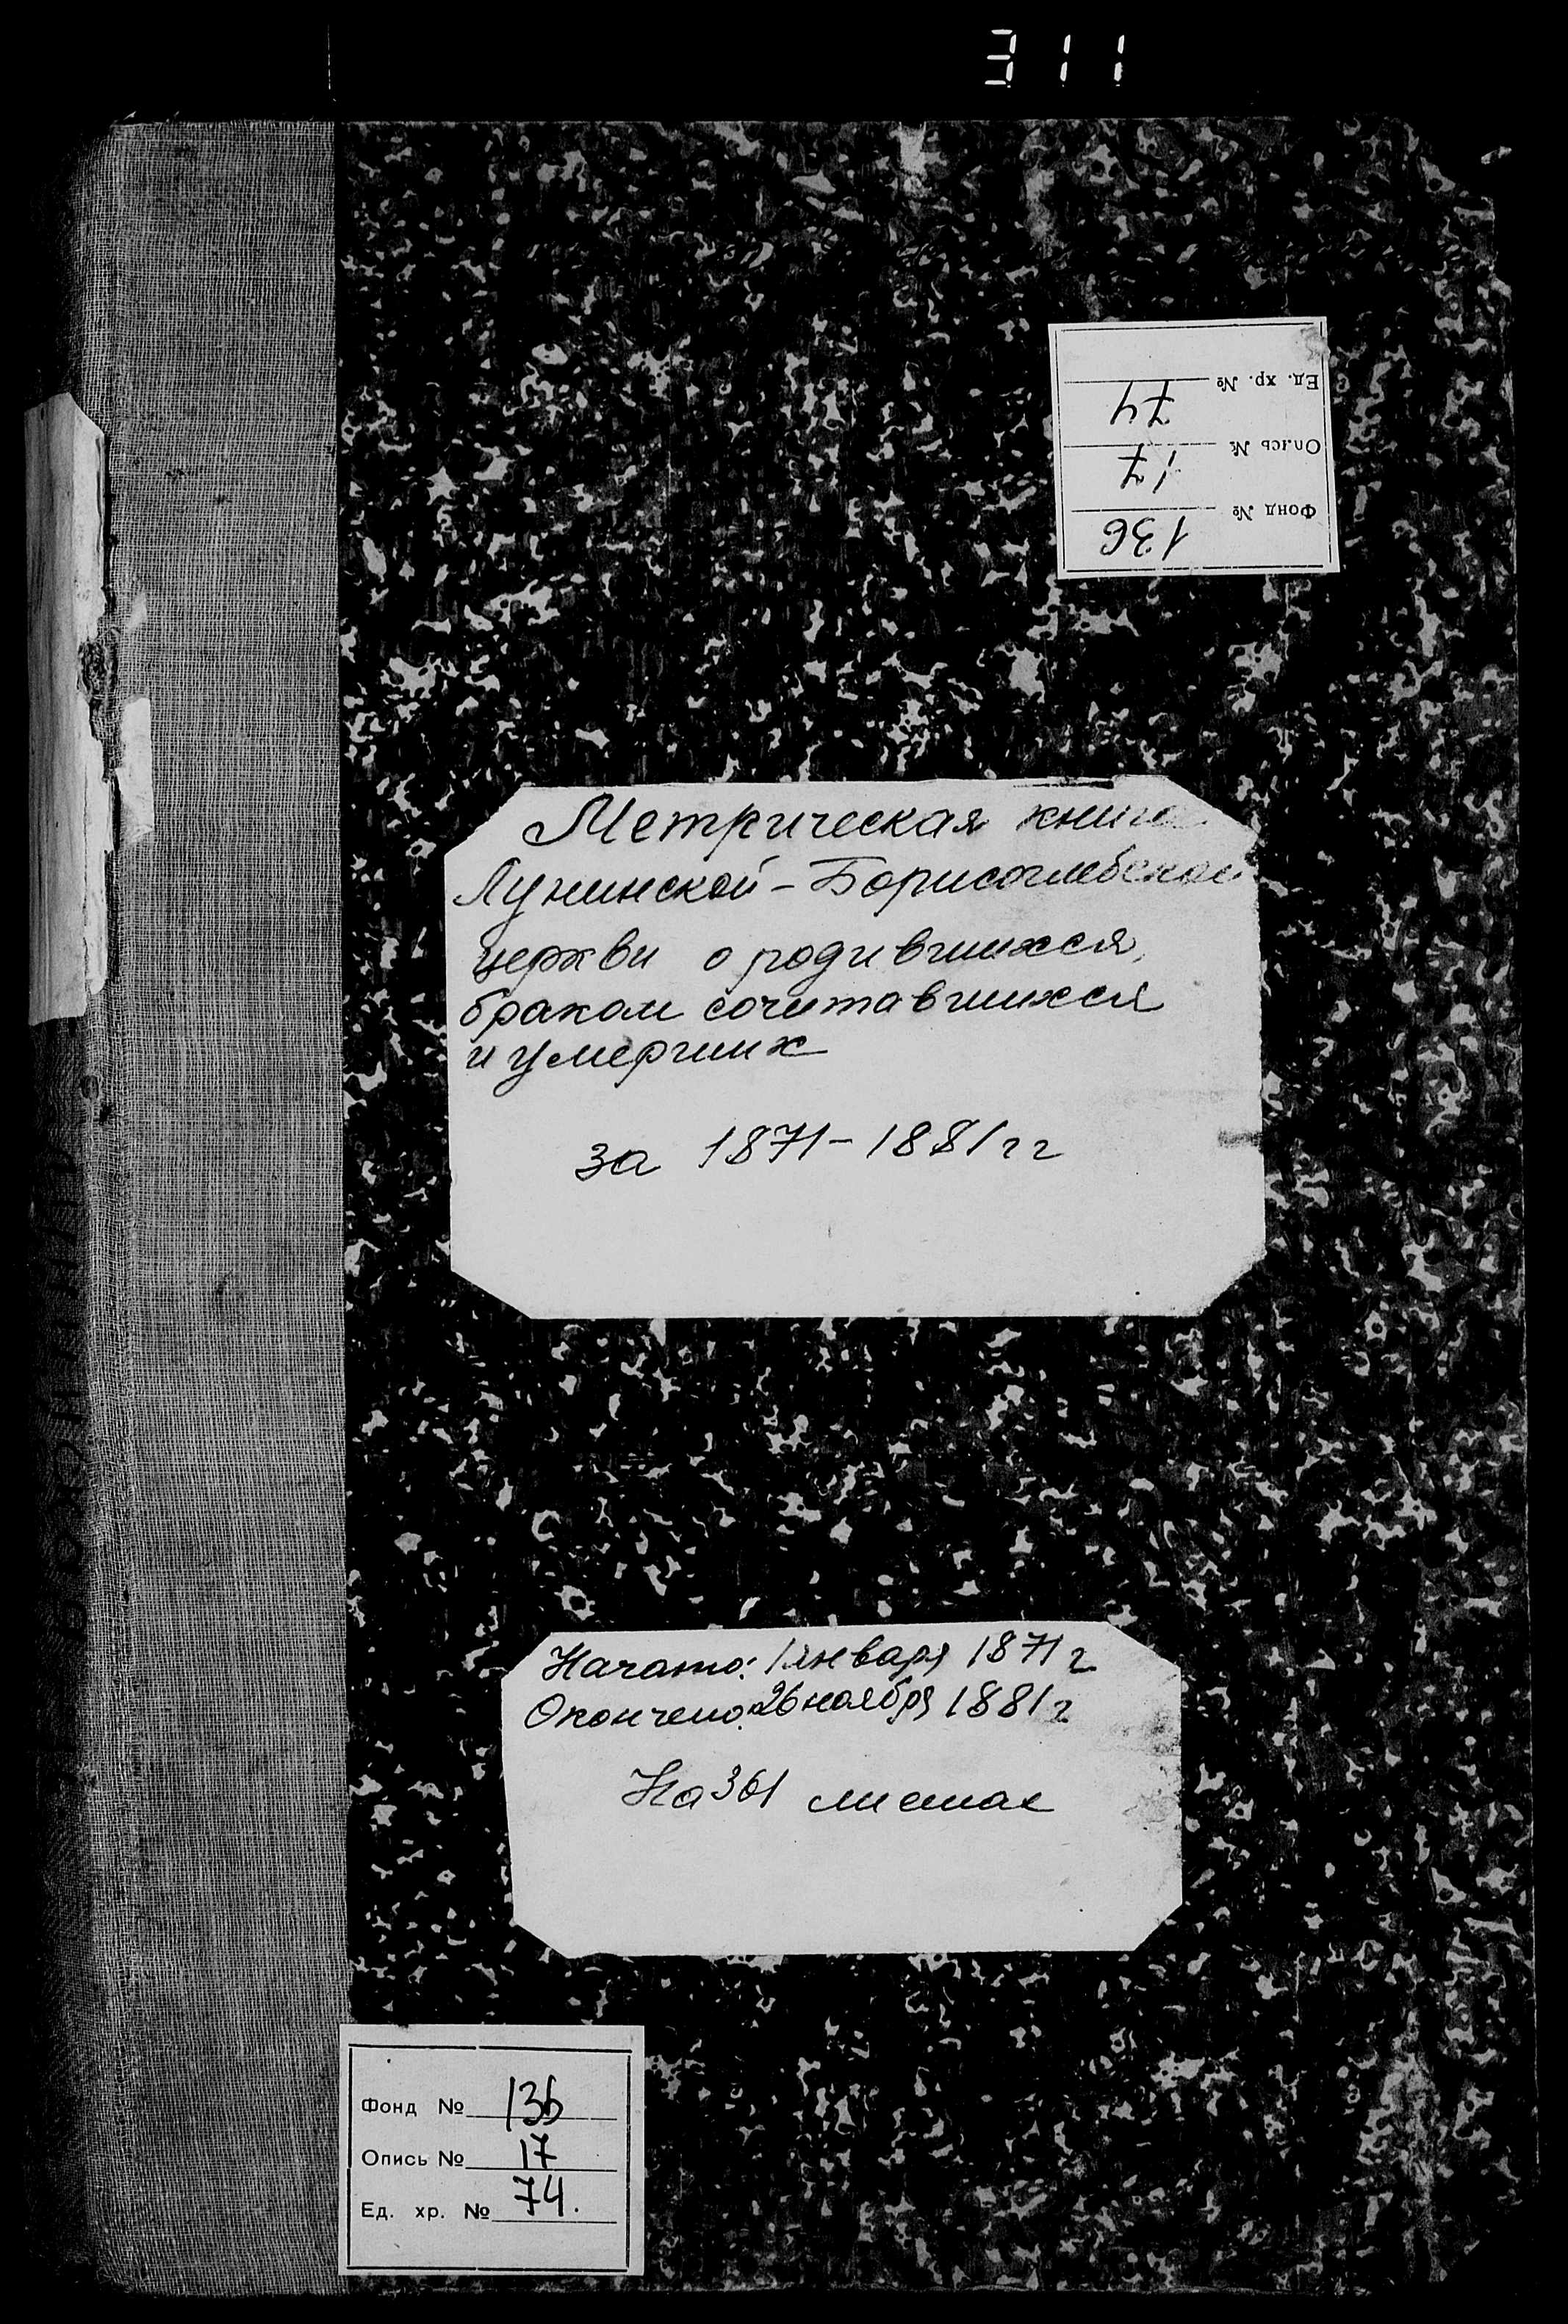 311
Ед. хр. № 74
Опись № 17
Фонд № 136
Метрическая книга
Лунинской - Борисоглебской
церкви о родившихся,
браком сочитавшихся
и умерших
за 1871 - 1881 гг
Начато: 1 января 1871 г
Окончено: 26 ноября 1881 г
На 361 листах
Фонд № 136
Опись № 17
Ед. хр. № 74.